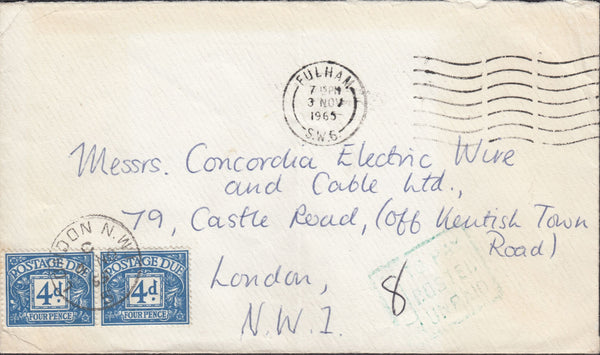 FULHAM
7 15PM
3 NOV
1965
S.W.6.
Messrs. Concordia Electric Wire
and Cable Ltd.,
79, Castle Road, (Off Kentish Town
Road)
London,
N.W.1.
8
TO PAY
POSTED
UNPAID
LONDON N.W.
POSTAGE DUE
4d.
FOUR PENCE
POSTAGE DUE
4d.
FOUR PENCE